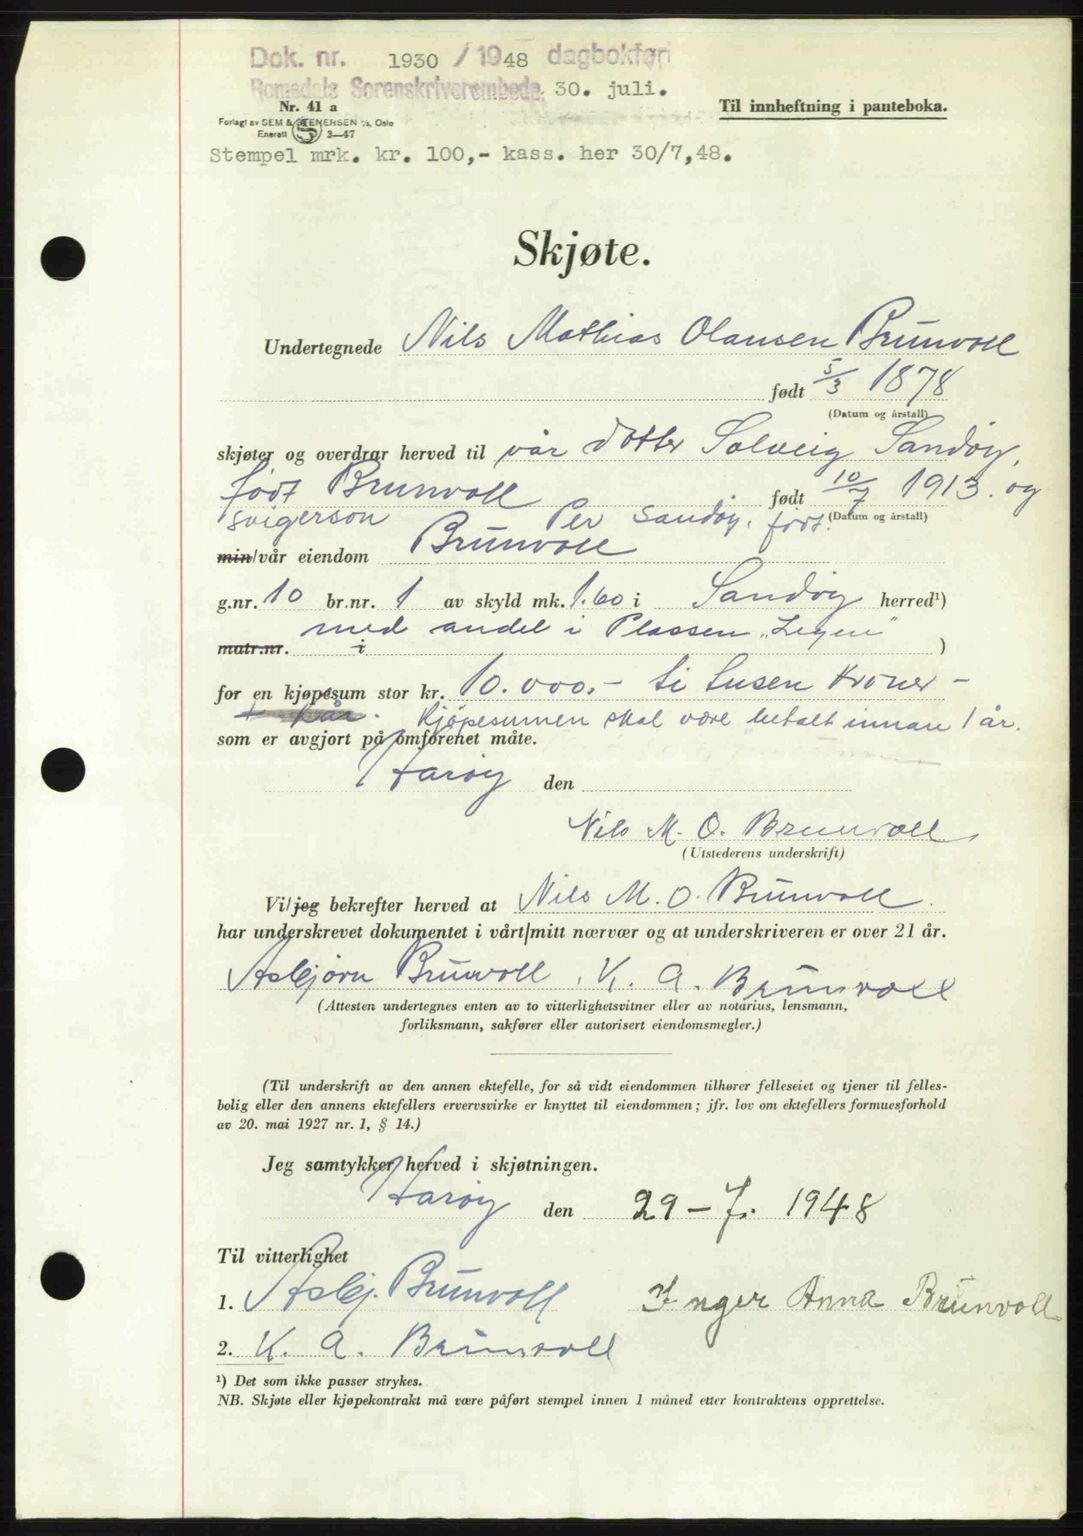 Dok. nr. 1930 / 1948 dagbokført
Romsdals Sorenskriverembede, 30. juli.
Nr. 41 a
Til innheftning i panteboka.
Forlagt av SEM & STENERSEN A/S, Oslo
Enerett 5 3—47
Stempel mrk. kr. 100,- kass. her 30/7,48.
Skjøte.
Undertegnede Nils Mathias Olausen Brunvoll
født 5/3 1878
(Datum og årstall)
skjøter og overdrar herved til vår dotter Solveig Sandøy,
født Brunvoll født 10/7 1913. og
svigerson Per Sandøy. født. (Datum og årstall)
min/vår eiendom Brunvoll
g.nr. 10 br.nr. 1 av skyld mk. 1.60 i Sandøy herred¹)
med andel i Plassen „
matr.nr. i )
for en kjøpesum stor kr. 10.000.- ti tusen kroner -
+ kår. Kjøpesumen skal være betalt innan 1 år.
som er avgjort på omforenet måte.
Harøy den
Nils M. O. Brunvoll
(Utstederens underskrift)
Vi/jeg bekrefter herved at Nils M. O. Brunvoll
har underskrevet dokumentet i vårt/mitt nærvær og at underskriveren er over 21 år.
Asbjørn Brunvoll, K. A. Brunvoll
(Attesten undertegnes enten av to vitterlighetsvitner eller av notarius, lensmann,
forliksmann, sakfører eller autorisert eiendomsmegler.)
(Til underskrift av den annen ektefelle, for så vidt eiendommen tilhører felleseiet og tjener til felles-
bolig eller den annens ektefellers ervervsvirke er knyttet til eiendommen; jfr. lov om ektefellers formuesforhold
av 20. mai 1927 nr. 1, § 14.)
Jeg samtykker herved i skjøtningen.
Harøy den 29 - 7. 1948
Til vitterlighet
1. Asbj. Brunvoll Inger Anna Brunvoll
2. K. A. Brunvoll
¹) Det som ikke passer strykes.
NB. Skjøte eller kjøpekontrakt må være påført stempel innen 1 måned etter kontraktens opprettelse.